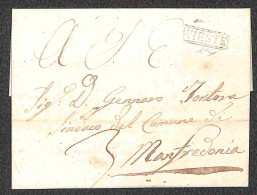 VIESTI
A S E
Sig.r D. Gennaro Tontora
Sindaco del Comune di
Manfredonia